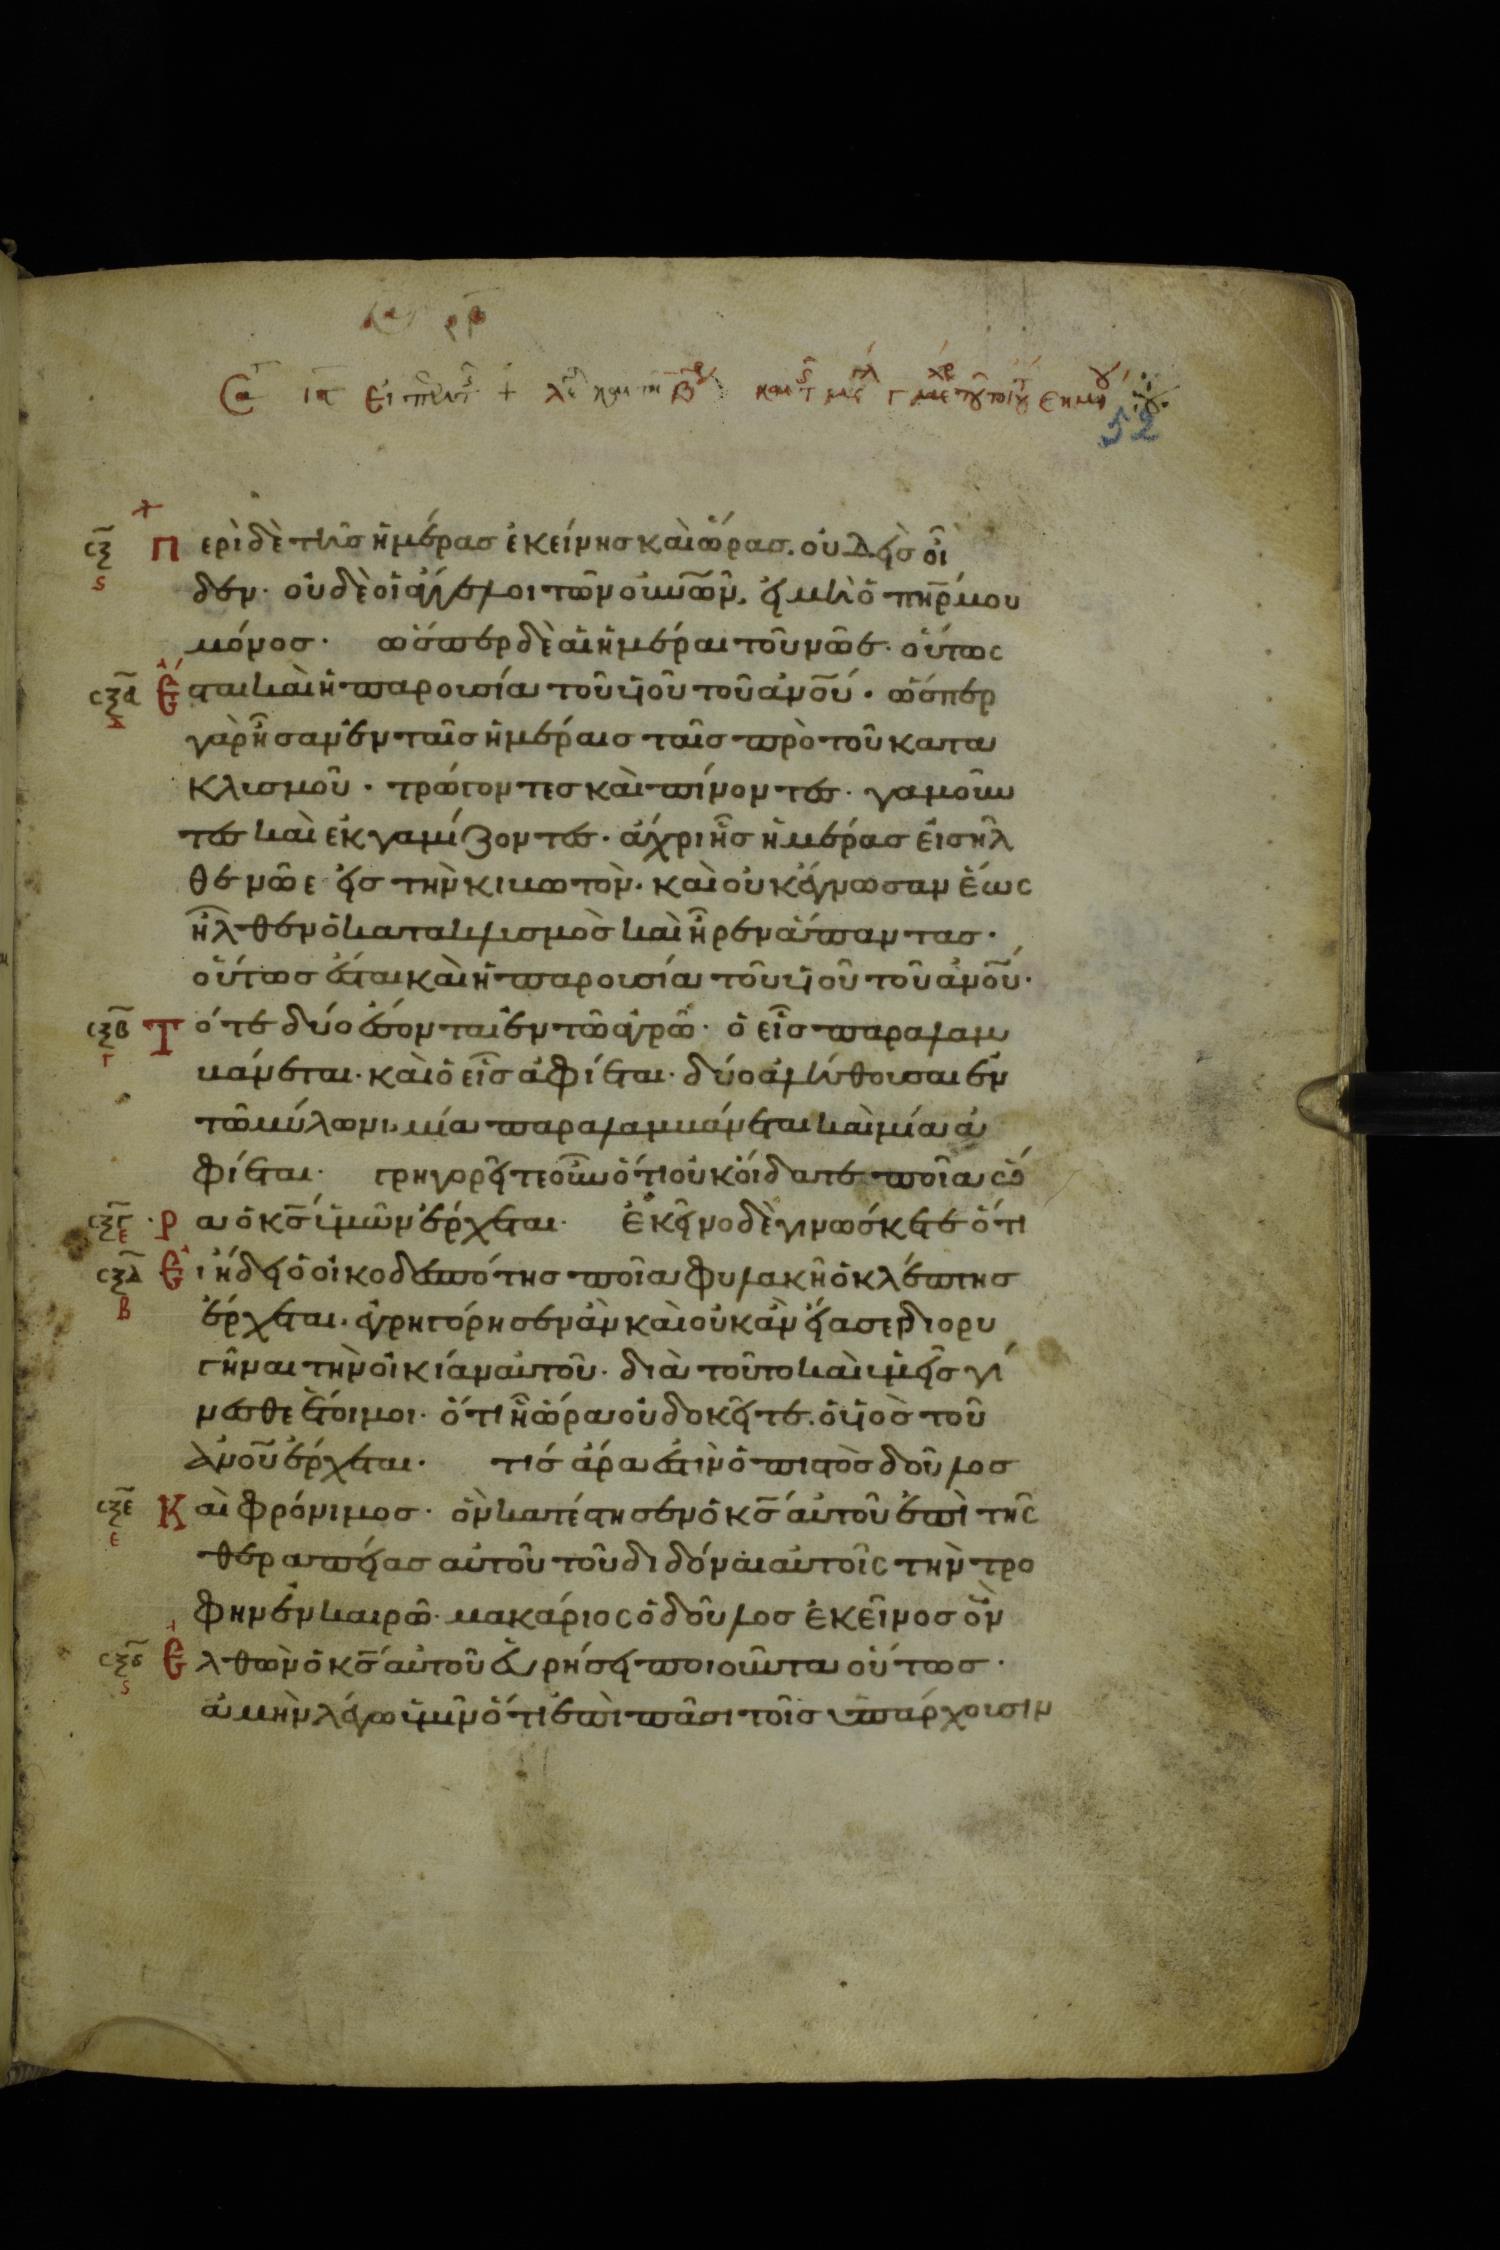 52
σξ Περὶ δὲ τῆς ἡμέρας ἐκείνης καὶ ὥρας. οὐδεὶς οἶ
ς δεν· οὐδὲ οἱ ἄγγελοι τῶν οὐνῶν, εἰ μὴ ὁ πηρ μου
μόνος· ὥσπερ δὲ αἱ ἡμέραι τοῦ νῶε· οὕτως
σξα Ἔσται καὶ ἡ παρουσία τοῦ υἱοῦ τοῦ ἀνου· ὥσπερ
γὰρ ἦσαν ἐν ταῖς ἡμέραις ταῖς πρὸ τοῦ κατα
κλισμοῦ· τρώγοντες καὶ πίνοντες· γαμοῦν
τες καὶ ἐκγαμίζοντες· ἄχρι ἧς ἡμέρας εἰσῆλ
θε νῶε εἰς τὴν κιβωτὸν· καὶ οὐκ ἔγνωσαν ἕως
ἦλθεν ὁ κατακλισμὸς καὶ ἦρεν ἅπαντας·
οὕτως ἔσται καὶ ἡ παρουσία τοῦ υἱοῦ τοῦ ἀνου·
σξβ Τότε δύο ἔσονται ἐν τῶ ἀγρῶ· ὁ εἷς παραλαμ
γ βάνεται· καὶ ὁ εἷς ἀφίεται· δύο ἀλήθουσαι ἐν
τῶ μύλωνι, μία παραλαμβάνεται καὶ μία ἀ
φίεται· γρηγορεῖτε οὖν ὅτι οὐκ οἴδατε ποῖα ὥ
σξγ ρα ὁ κς ὑμῶν ἔρχεται· Ἐκεῖνο δὲ γινώσκετε ὅτι
σξδ Ει ἤδει ὁ οἰκοδεσπότης ποῖα φυλακῆ ὁ κλέπτης
β ἔρχεται. ἐγρηγόρησεν ἂν καὶ οὐκ ἂν εἴασε διορυ
γῆναι τὴν οἰκίαν αὐτοῦ· διὰ τοῦτο καὶ ὑμεῖς γί
νεσθε ἕτοιμοι· ὅτι ἧ ὥρα οὐ δοκεῖτε. ὁ υἱὸς τοῦ
ἀνου ἔρχεται· τίς ἄρα ἐστὶν ὁ πιστὸς δοῦλος
σξε Καὶ φρόνιμος· ὃν κατέστησεν ὁ κς αὐτοῦ ἐπὶ τῆς
ε θεραπείας αὐτοῦ τοῦ διδόναι αὐτοῖς τὴν τρο
φην ἐν καιρῶ· μακάριος ὁ δοῦλος ἐκεῖνος ὃν
σξς Ελθὼν ὁ κς αὐτοῦ εὑρήσει ποιοῦντα οὕτως·
ς ἀμὴν λέγω ὑμῖν ὅτι ἐπὶ πᾶσι τοῖς ὑπάρχουσιν